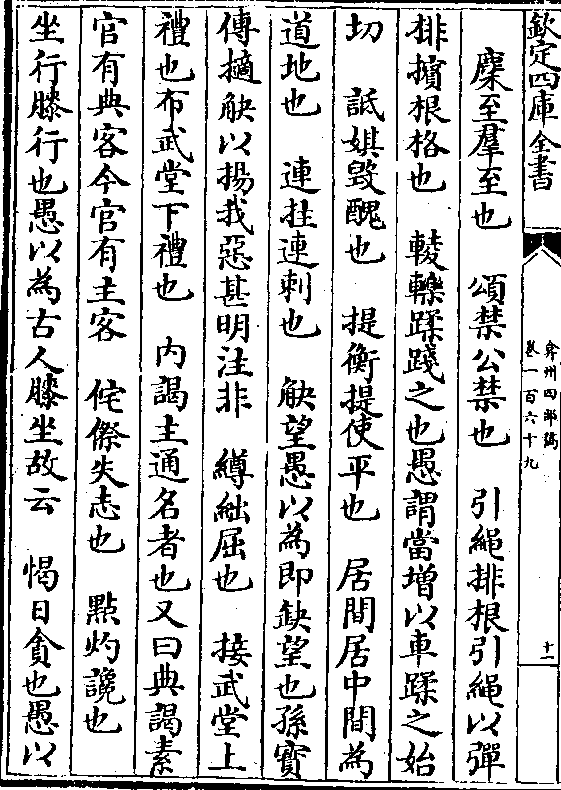 欽定四庫全書
弇州四部稿
卷一百六十九
十一
麇至羣至也　頌禁公禁也　引繩排根引繩以彈
排擯根格也　輘轢蹂踐之也愚謂當增以車蹂之始
切　詆娸毀醜也　提衡提使平也　居間居中間為
道地也　連拄連刺也　觖望愚以為即缺望也孫寳
傳擿觖以揚我惡甚明注非　縛絀屈也　接武堂上
禮也布武堂下禮也　内謁主通名者也又曰典謁素
官有典客今官有主客　侘傺失志也　點灼讒也
坐行膝行也愚以為古人膝坐故云　愒日貪也愚以